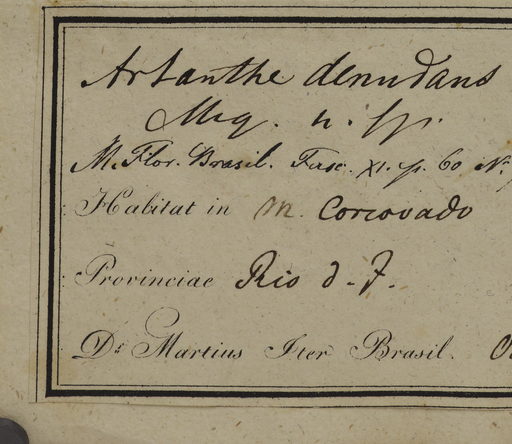 Artanthe denudans
Miq. n. sp.
M. Flor. Brasil. Fasc. XI. p. 60 N.
Habitat in M. Corcovado
Provinciae Rio d. J.
Dr. Martius Iter Brasil.